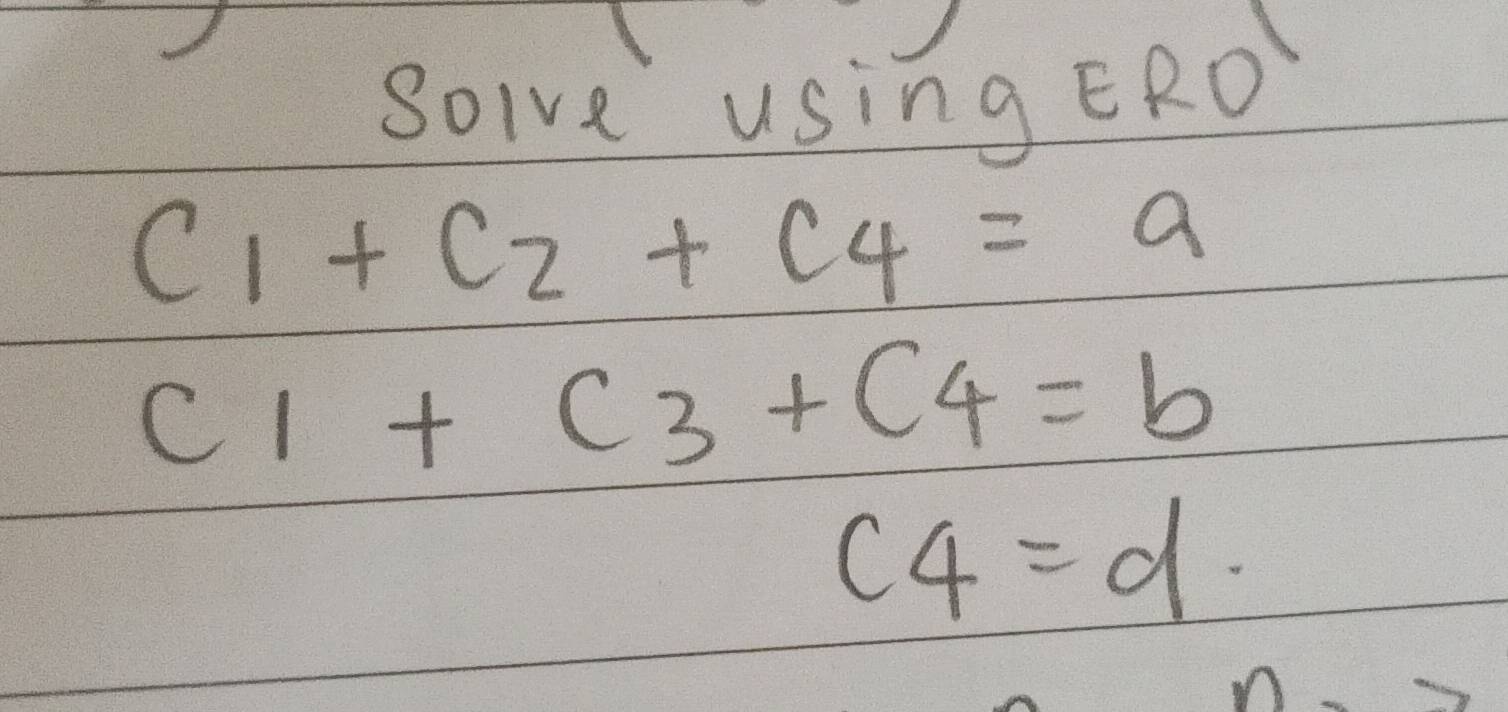 Solve using ERO
C1 + C2 + C4 = a
C1 + C3 + C4 = b
C4 = d.